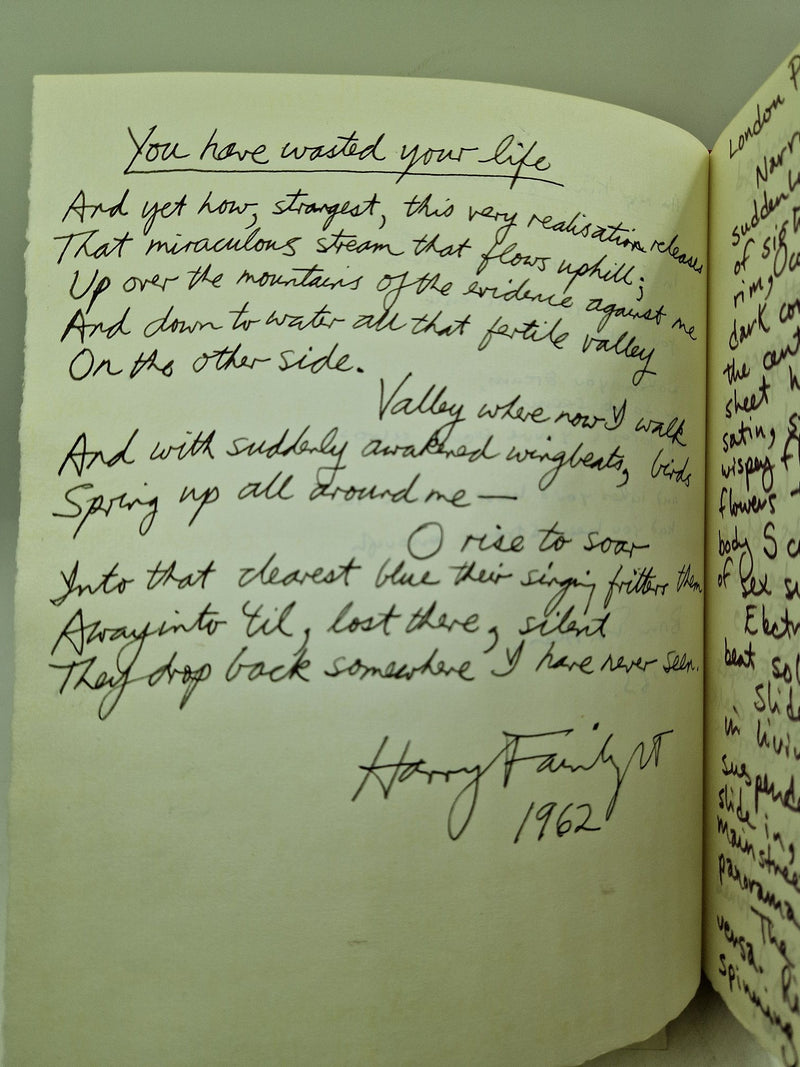 You have wasted your life
And yet how, strangest, this very realisation releases
That miraculous stream that flows uphill;
Up over the mountains of the evidence against me
And down to water all that fertile valley
On the other side.
Valley where now I walk
And with suddenly awakened wingbeats, birds
Spring up all around me —
O rise to soar
Into that clearest blue their singing fritters them
Away into 'til, lost there, silent
They drop back somewhere I have never seen.
Harry Fainlight
1962
London P
Narr
suddenl
of sig
rim,
dark co
the cent
sheet h
satin, s
wispy f
flowers
body S c
of sex su
Electr
beat sol
Slid
in livi
suspend
slide in,
mainstree
panorama
The
versa. R
spinning